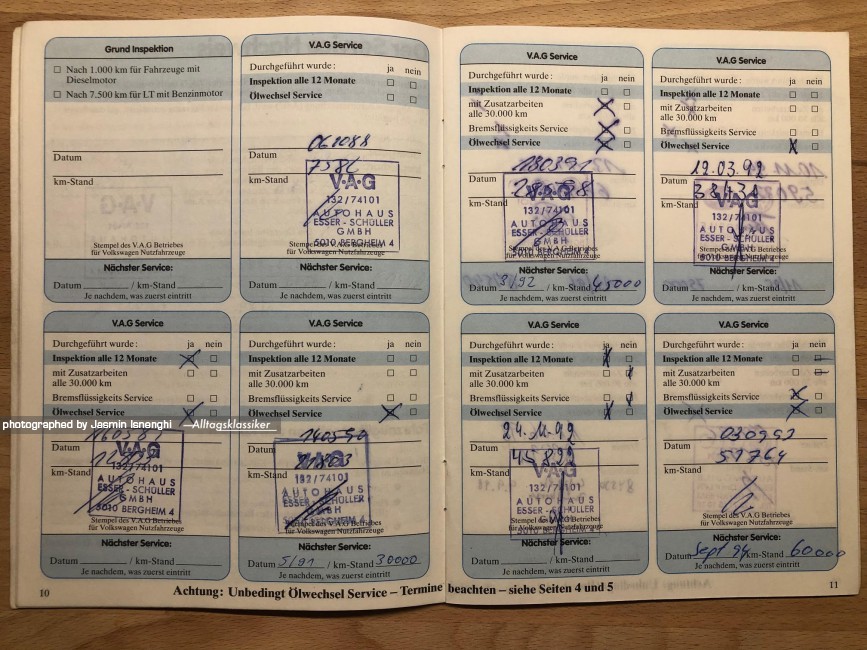 Grund Inspektion
Nach 1.000 km für Fahrzeuge mit
Dieselmotor
Nach 7.500 km für LT mit Benzinmotor
Datum
km-Stand
Stempel des V.A.G Betriebes
für Volkswagen Nutzfahrzeuge
Nächster Service:
Datum / km-Stand
Je nachdem, was zuerst eintritt
V.A.G Service
Durchgeführt wurde: ja nein
Inspektion alle 12 Monate
Ölwechsel Service
061088
Datum
7586
km-Stand
V·A·G
132/74101
AUTOHAUS
ESSER-SCHÜLLER
GMBH
5010 BERGHEIM 4
Stempel des V.A.G Betriebes
für Volkswagen Nutzfahrzeuge
Nächster Service:
Datum / km-Stand
Je nachdem, was zuerst eintritt
V.A.G Service
Durchgeführt wurde: ja nein
Inspektion alle 12 Monate
mit Zusatzarbeiten
alle 30.000 km
Bremsflüssigkeits Service
Ölwechsel Service
180391
Datum
km-Stand
V·A·G
132/74101
AUTOHAUS
ESSER-SCHÜLLER
GMBH
5010 BERGHEIM 4
Stempel des V.A.G Betriebes
für Volkswagen Nutzfahrzeuge
Nächster Service:
Datum 3/92 / km-Stand 45000
Je nachdem, was zuerst eintritt
V.A.G Service
Durchgeführt wurde: ja nein
Inspektion alle 12 Monate
mit Zusatzarbeiten
alle 30.000 km
Bremsflüssigkeits Service
Ölwechsel Service
12.03.92
Datum
38434
km-Stand
V·A·G
132/74101
AUTOHAUS
ESSER-SCHÜLLER
GMBH
5010 BERGHEIM 4
Stempel des V.A.G Betriebes
für Volkswagen Nutzfahrzeuge
Nächster Service:
Datum / km-Stand
Je nachdem, was zuerst eintritt
V.A.G Service
Durchgeführt wurde: ja nein
Inspektion alle 12 Monate
mit Zusatzarbeiten
alle 30.000 km
Bremsflüssigkeits Service
Ölwechsel Service
Datum
km-Stand
V·A·G
132/74101
AUTOHAUS
ESSER-SCHÜLLER
GMBH
5010 BERGHEIM 4
Stempel des V.A.G Betriebes
für Volkswagen Nutzfahrzeuge
Nächster Service:
Datum / km-Stand
Je nachdem, was zuerst eintritt
V.A.G Service
Durchgeführt wurde: ja nein
Inspektion alle 12 Monate
mit Zusatzarbeiten
alle 30.000 km
Bremsflüssigkeits Service
Ölwechsel Service
140590
Datum
km-Stand
V·A·G
132/74101
AUTOHAUS
ESSER-SCHÜLLER
GMBH
5010 BERGHEIM 4
Stempel des V.A.G Betriebes
für Volkswagen Nutzfahrzeuge
Nächster Service:
Datum 5/91 / km-Stand 30000
Je nachdem, was zuerst eintritt
V.A.G Service
Durchgeführt wurde: ja nein
Inspektion alle 12 Monate
mit Zusatzarbeiten
alle 30.000 km
Bremsflüssigkeits Service
Ölwechsel Service
24.11.92
Datum
45822
km-Stand
V·A·G
132/74101
AUTOHAUS
ESSER-SCHÜLLER
GMBH
5010 BERGHEIM 4
Stempel des V.A.G Betriebes
für Volkswagen Nutzfahrzeuge
Nächster Service:
Datum / km-Stand
Je nachdem, was zuerst eintritt
V.A.G Service
Durchgeführt wurde: ja nein
Inspektion alle 12 Monate
mit Zusatzarbeiten
alle 30.000 km
Bremsflüssigkeits Service
Ölwechsel Service
030993
Datum
51764
km-Stand
Stempel des V.A.G Betriebes
für Volkswagen Nutzfahrzeuge
Nächster Service:
Datum Sept 94 / km-Stand 60000
Je nachdem, was zuerst eintritt
10
Achtung: Unbedingt Ölwechsel Service – Termine beachten – siehe Seiten 4 und 5
11
photographed by Jasmin Isnenghi —Alltagsklassiker